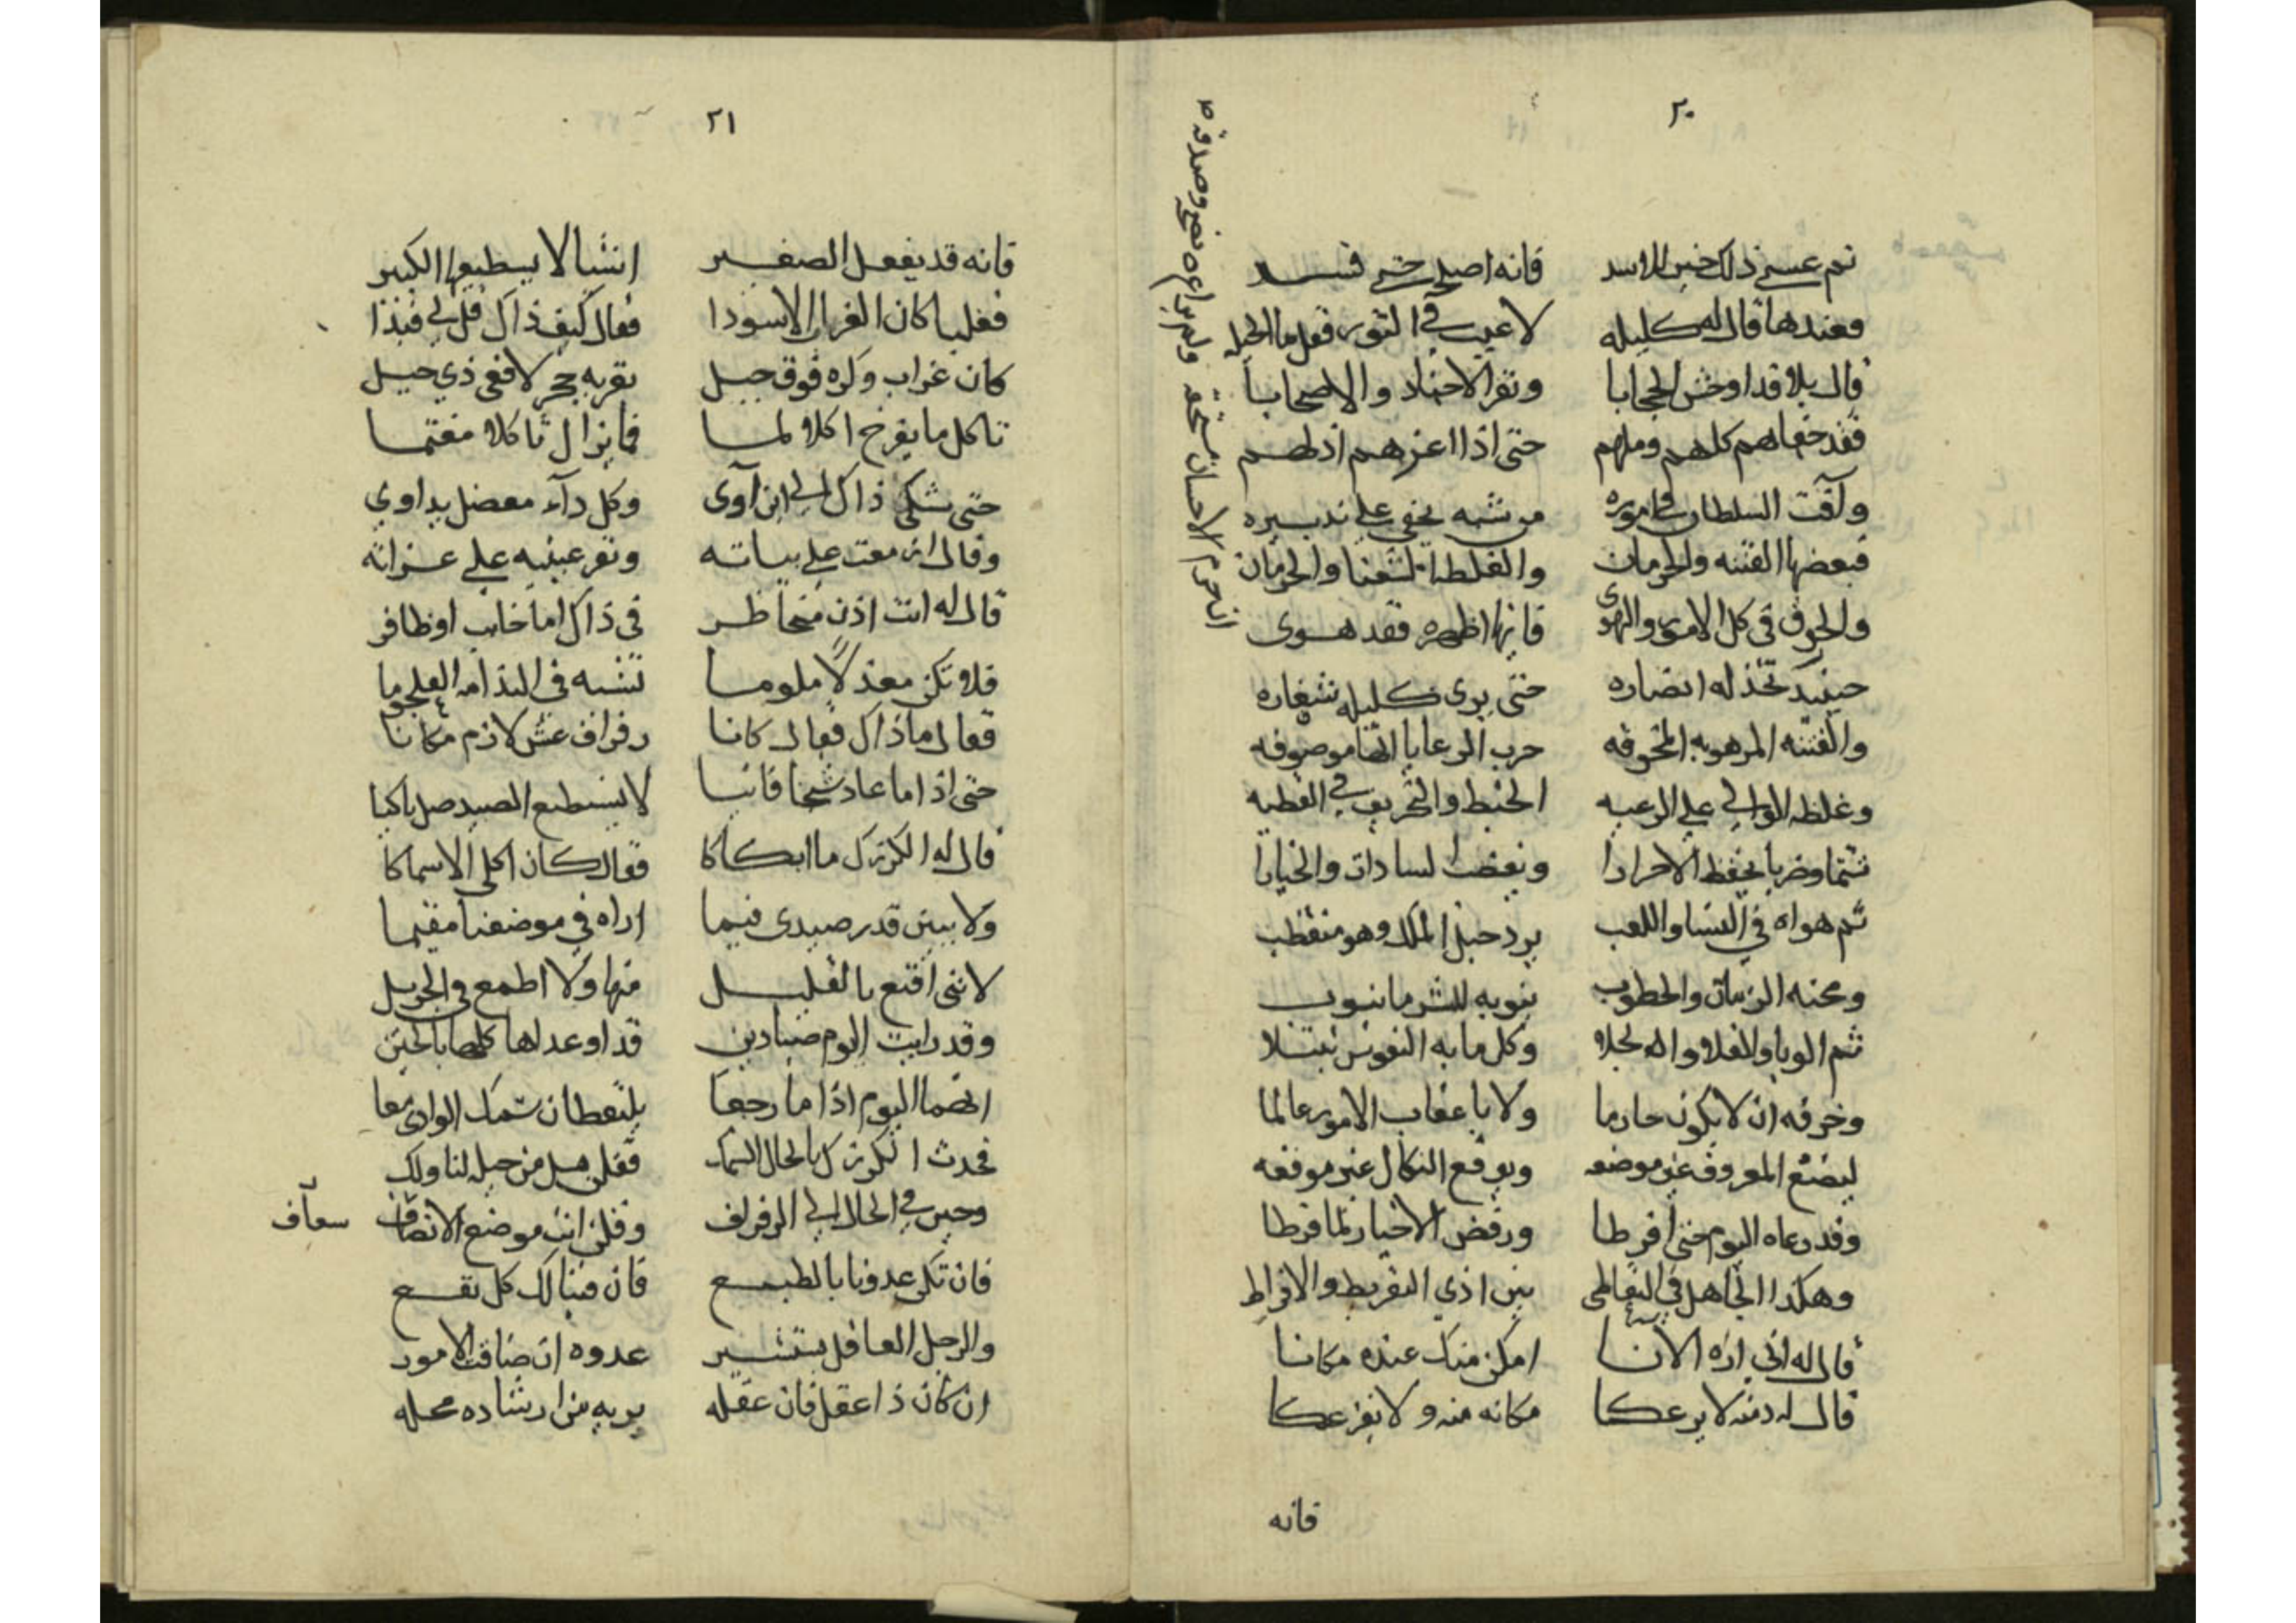 ٢٠
ثم عسى ذلك خير للاسد فانه اصبح حتى فسد
فعندها قال له كليله لا عيب في الثور فقل ما الحيله
قال بلا قد اوحش الحجابا ونفر الاجناد والاصحابا
فقد جفاهم كلهم وملهم حتى اذا اعزهم اذلهم
وآفت السلطان في اموره من ستة يخفى على تدبيره
فبعضها الفتنه والحرمان والغلظة والحرمان
والخرق في كل الامور والهوى فانها اظهره فقد هوى
حينيد تخذله انصاره حتى يرى كليله شغاره
والفتنه المرهوبه المخوفه حرب الرعايا انها موصوفه
وغلظه الوالي على الرعيه الخبط والتخريق في القطيه
شتما وضربا يحفظ الاحرارا ويغضب السادات والخيارا
ثم هواه في النسا واللعب يرد حبل الملك وهو منقطب
ومحنه الزمان والخطوب ينوبه للشر ما ينوب
ثم الوبا والغلا والجلا وكل ما به النفوس تبتلا
وخرقه ان لا يكون حازما ولا باعقاب الامور عالما
ليضع المعروف غير موضعه ويوقع النكال غير موقعه
وقد رعاه اليوم حتى افرطا ورفض الاخيار لما فرطا
وهكذا الجاهل في التعاطي بين اذي التفريط والافراط
قال له اني اراه الانا امكن منك عنده مكانا
قال له دمنه لا يرعكا مكانه منه ولا يفزعكا
فانه
ان احرم الاحسان مستحقه ولم يراع نصحه وصدقه
٢١
فانه قد يفعل الصغير اشيا لا يسطيعها الكبير
فغلبا كان الغراب الاسودا فقال كيف ذاك قل لي
كان غراب وكره فوق جبل بقربه جحر لافعى ذي حيل
تاكل ما يفرخ اكلا لما فما يزال ثاكلا مغتما
حتى شكى ذاك الى ابن آوى وكل دآء معضل يداوي
وقال ازمعت على بياته ونقر عينيه على عزاته
قال له انت اذن مخاطر في ذاك اما خاب او ظافر
فلا تكن معذلا ملوما تشبه في الندامه العلجوما
فقال ما ذاك فقال كانا رفراف عش لازم مكانا
حتى اذا ما عاد شيخا فانيا لا يستطيع الصيد ضل باكيا
قال له الكركزك ما ابكاكا فقال كان اكلي الاسماكا
ولا يبين قدر صيدي فيما اراه في موضعنا مقيما
لانني اقنع بالقليل منها ولا اطمع في الجزيل
وقد رايت اليوم صيادين قد اوعداها كلها بالحين
انهما اليوم اذا ما رجعا يلتقطان سمك الوادي معا
فحدث الكركزك بالحال السمك فقلن هل من حيله لنا ولك
وجين في الحال الى الرفراف وقلن انت موضع الانصاف
سعاف
فان تكن عدونا بالطبع فان فينا لك كل نفع
والرجل العاقل يستشير عدوه ان ضاقت الامور
ان كان ذا عقل فان عقله يريه من ارشاده محله